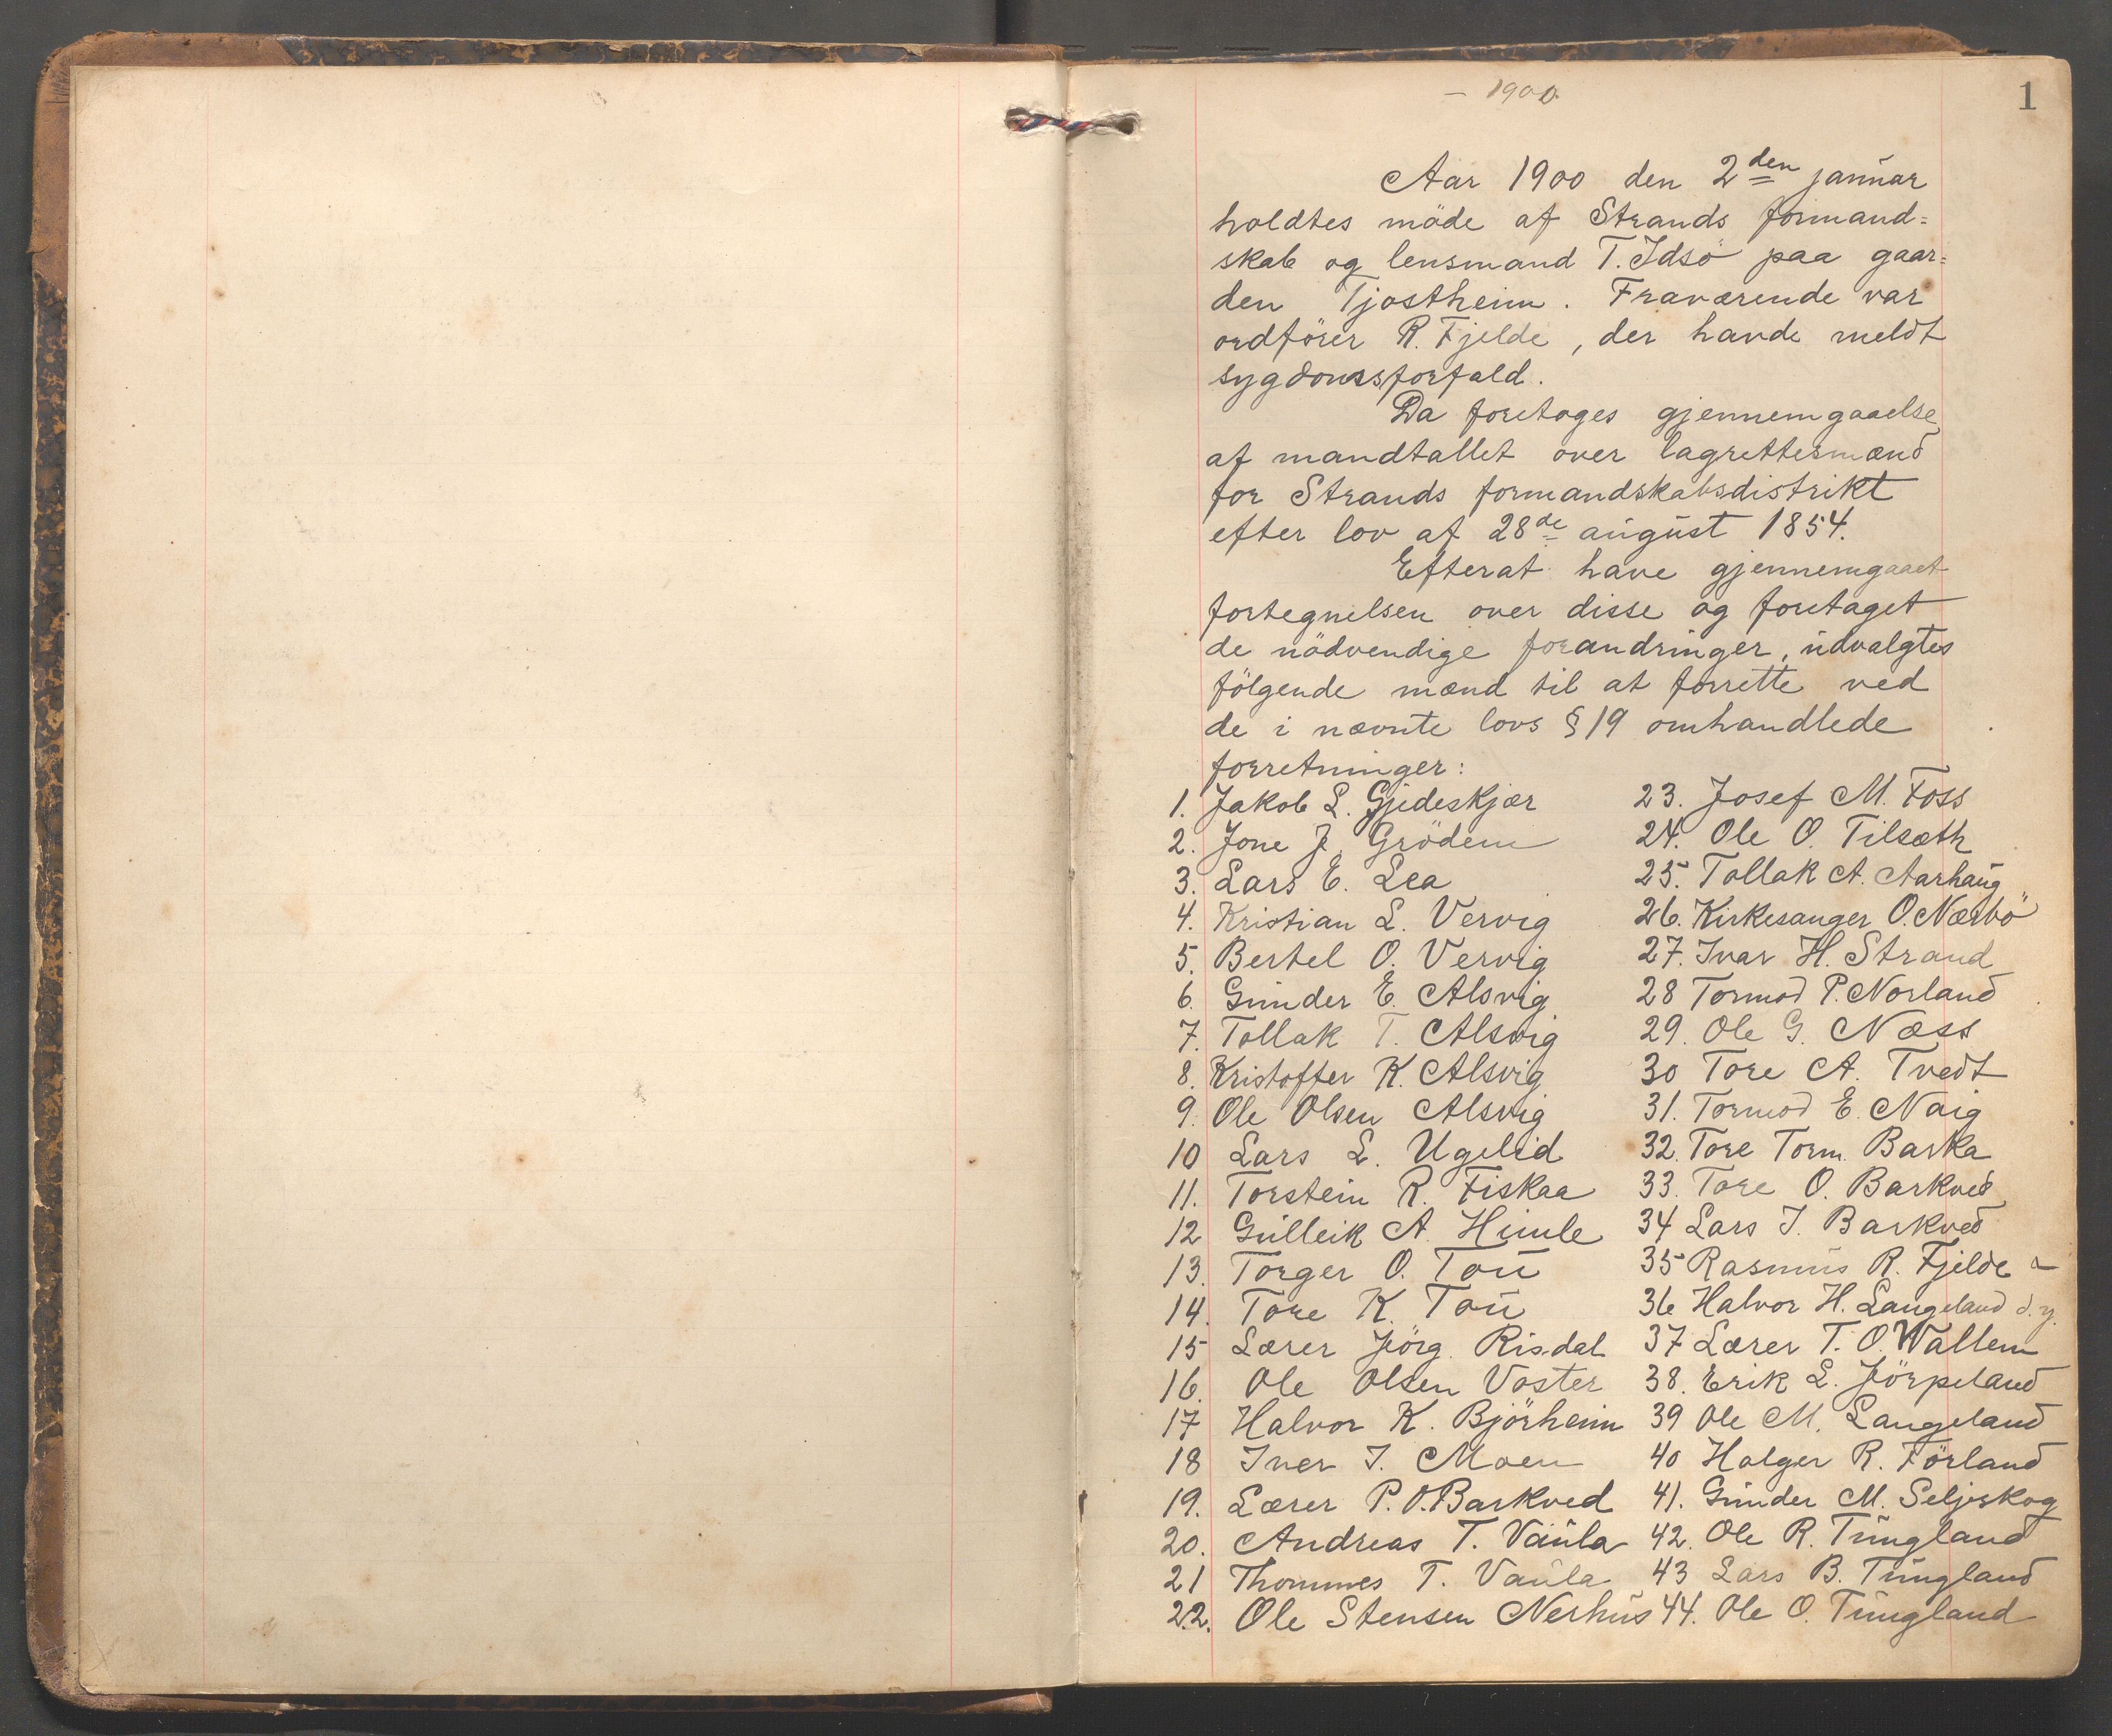 - 1900
1
Aar 1900 den 2den januar
holdtes möde af Strands formand=
skab og lensmand T. Idsö paa gaar=
den Tjostheim. Fraværende var
ordförer R. Fjelde, der havde meldt
sygdomsforfald.
Da foretoges gjennemgaaelse
af mandtallet over lagrettesmænd
for Strands formandskabsdistrikt
efter lov af 28de august 1854.
Efterat have gjennemgaaet
fortegnelsen over disse og foretaget
de nödvendige forandringer, udvalgtes
fölgende mænd til at forrette ved
de i nævnte lovs § 19 omhandlede
forretninger:
1. Jakob L. Gjedeskjær
2. Jone J. Grödem
3. Lars E. Lea
4. Kristian L. Vervig
5. Bertel O. Vervig
6. Gunder E. Alsvig
7. Tollak T. Alsvig
8. Kristoffer K. Alsvig
9. Ole Olsen Alsvig
10 Lars L. Ugelid
11. Torstein R. Fiskaa
12 Gulleik A. Himle
13. Torger O. Tou
14. Tore K. Tou
15 Lærer Jörg. Risdal
16. Ole Olsen Voster
17 Halvor K. Björheim
18 Iver I. Moen
19. Lærer P. O. Barkved
20. Andreas T. Vaula
21 Thommes T. Vaula
22. Ole Stensen Nerhus
23. Josef M. Foss
24. Ole O. Tilsæth
25. Tollak A. Aarhaug
26. Kirkesanger O. Nærbö
27. Ivar H. Strand
28 Tormod P. Norland
29. Ole G. Næss
30 Tore A. Tvedt
31. Tormod E. Nag
32. Tore Torm. Barka
33. Tore O. Barkved
34 Lars J. Barkved
35 Rasmus R. Fjelde
36 Halvor H. Langeland d.y.
37 Lærer T. O. Wallem
38. Erik L. Jörpeland
39 Ole M. Langeland
40 Holger R. Förland
41. Gunder M. Seljeskog
42. Ole R. Tungland
43 Lars B. Tungland
44. Ole O. Tungland